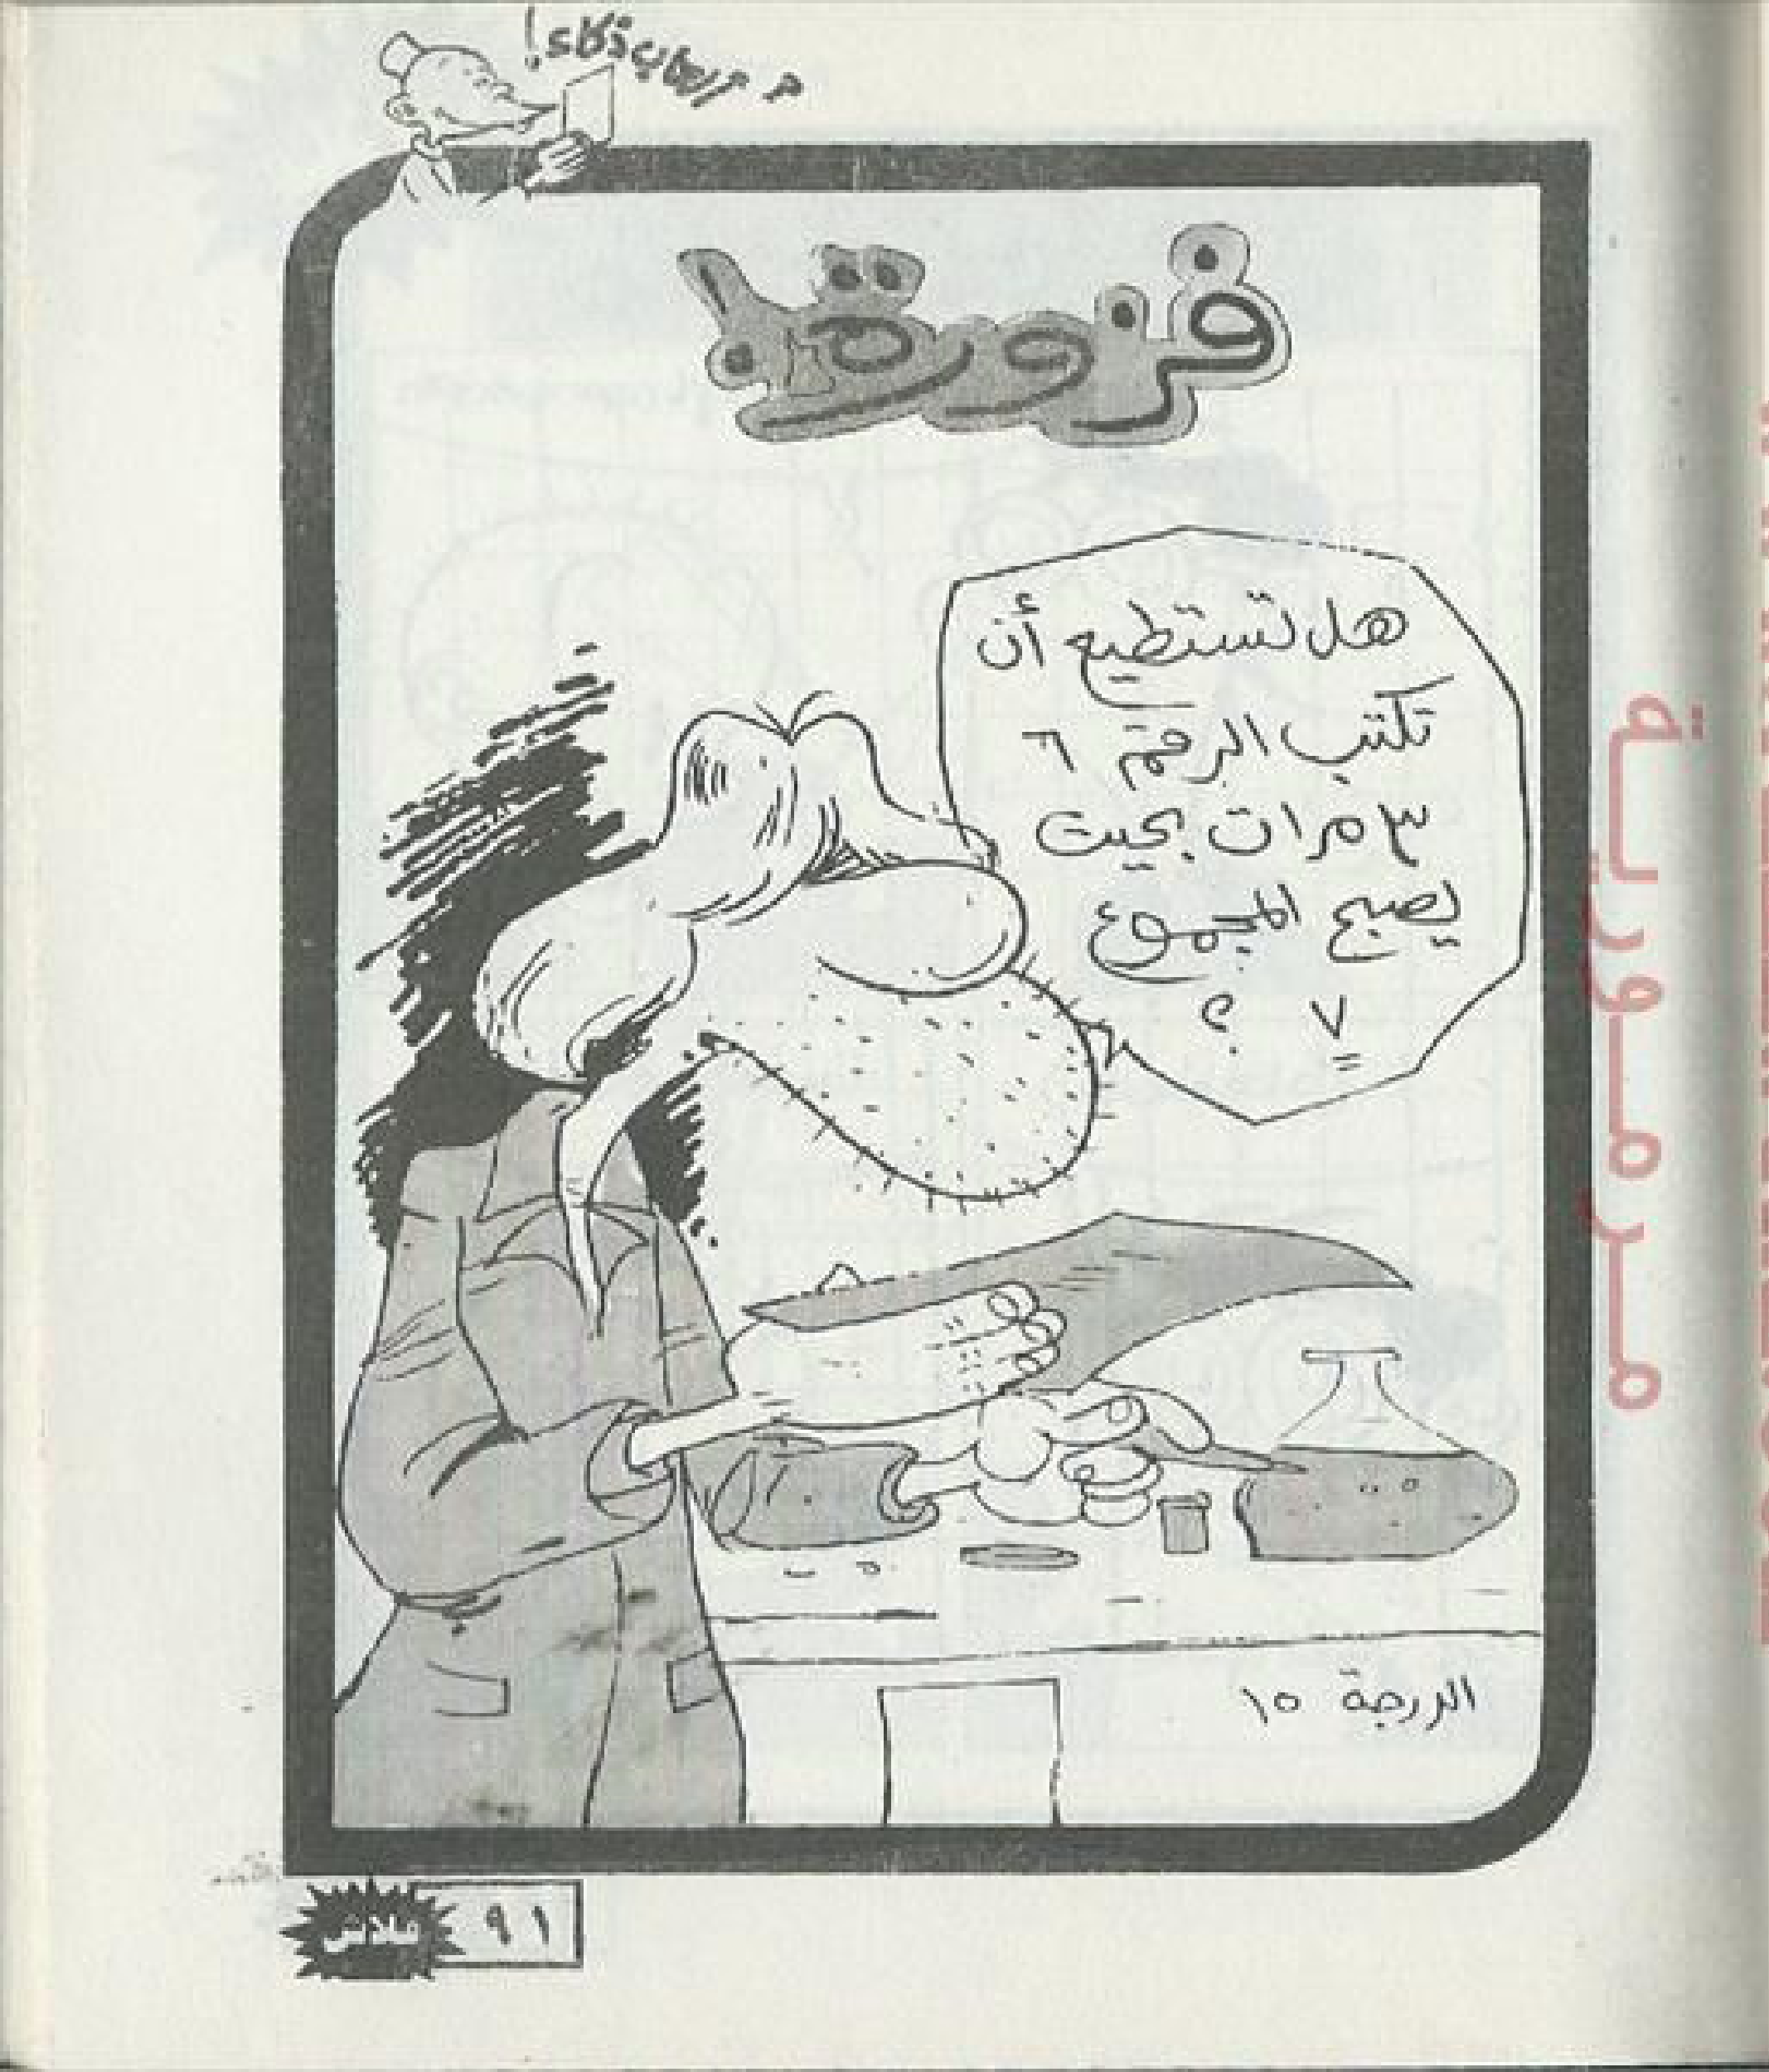 فزورة!
هل تستطيع أن
تكتب الرقم ٦
٣ مرات بحيث
يصبح المجموع
٧ ؟
الدرجة ١٥
٩١
فلاش